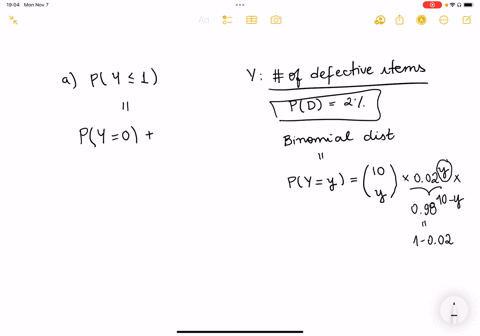 19:04 Mon Nov 7
Aa
a) P(Y ≤ 1)
=
P(Y=0) +
Y: # of defective items
P(D) = 2%
Binomial dist
=
P(Y=y) = (10 y) × 0.02^y ×
0.98^10-y
=
1-0.02